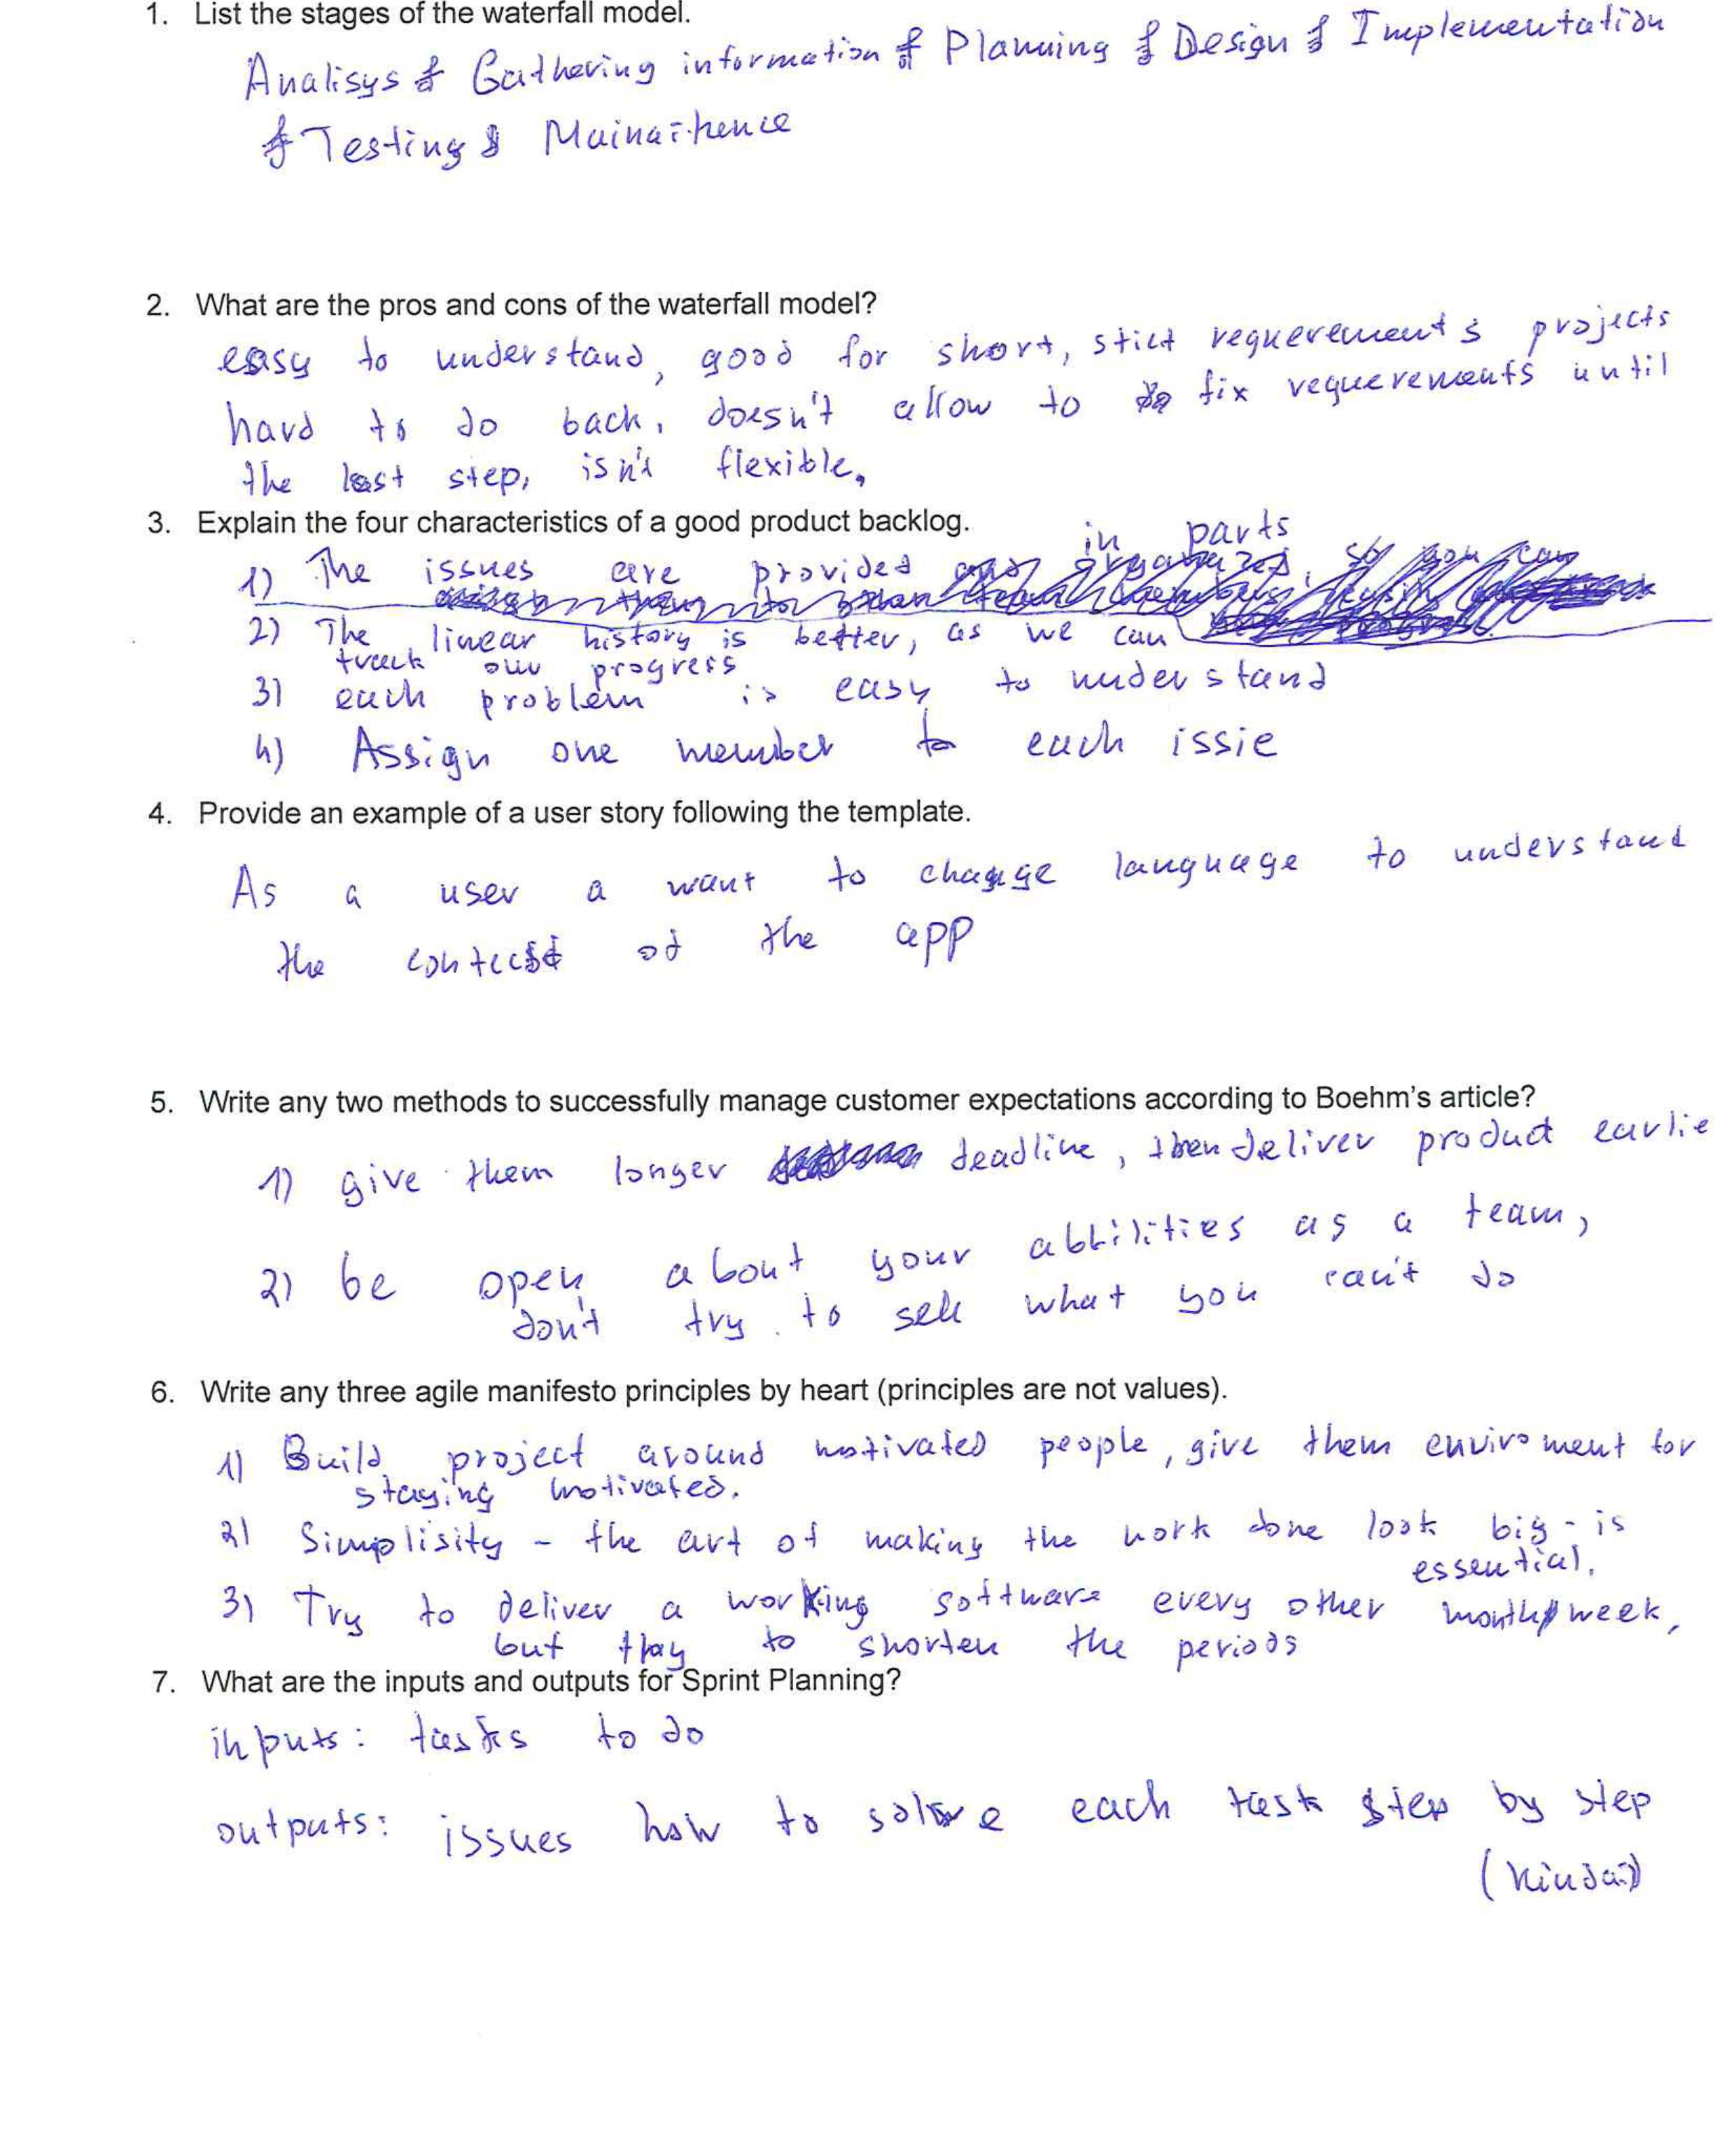 1. List the stages of the waterfall model.
Analisys & Gathering information & Planning & Design & Implementation
& Testing & Mainaithence
2. What are the pros and cons of the waterfall model?
easy to understand, good for short, stict requerements projects
hard to do back, doesn't allow to fix requerements until
the last step, isn't flexible,
3. Explain the four characteristics of a good product backlog.
in parts
1) The issues are provided
2) The linear history is better, as we can
track our progress
3) each problem is easy to understand
4) Assign one member to each issie
4. Provide an example of a user story following the template.
As a user a want to change language to understand
the of the app
5. Write any two methods to successfully manage customer expectations according to Boehm's article?
1) give them longer deadline, then deliver product earlie
2) be open about your abbilities as a team,
don't try to sell what you can't do
6. Write any three agile manifesto principles by heart (principles are not values).
1) Build project around motivated people, give them enviroment for
staying motivated.
2) Simplisity - the art of making the work done look big - is
essential.
3) Try to deliver a working software every other month/week,
but to shorten the periods
7. What are the inputs and outputs for Sprint Planning?
inputs: tasks to do
outputs: issues how to solve each task step by step
(kinda)